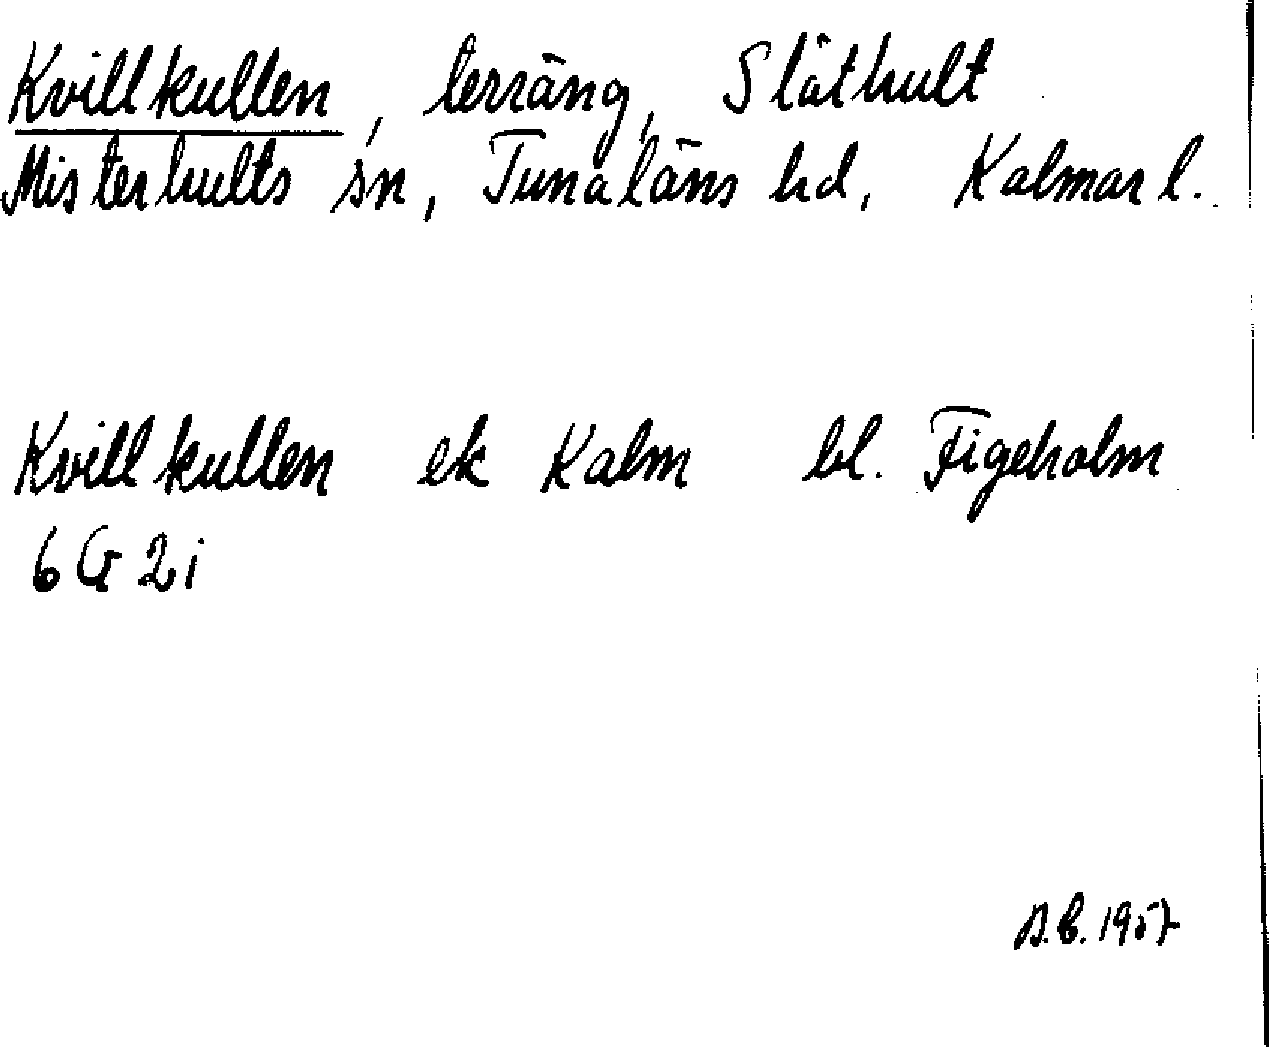 Kvillkullen, terräng, Släthult
Misterhults sn, Tunaläns hd, Kalmar l.
Kvillkullen ek Kalm bl. Figeholm
6 G 2i
1957